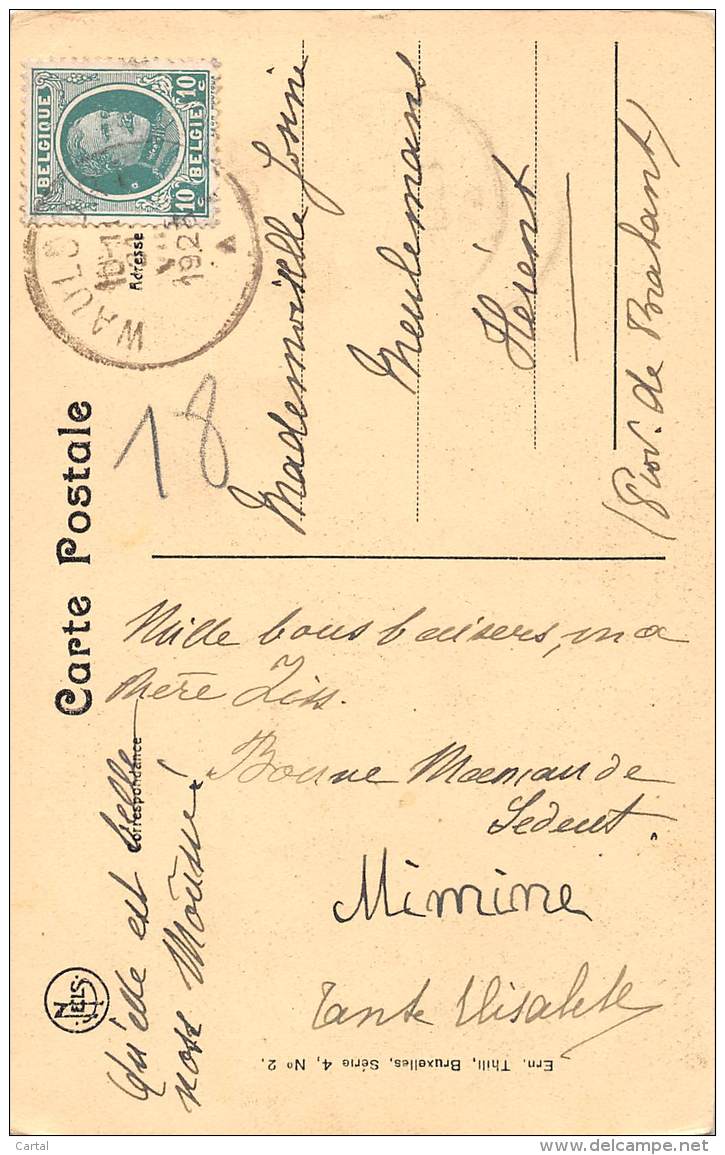 Carte Postale
Correspondance
Adresse
BELGIQUE
BELGIE
10 c
10 c
WAULS
1926
18
Mademoiselle Josine
Meulemans
Hérent
(Prov. de Brabant)
Mille bons baisers, ma
chère Ziss.
Bonne Maman de
Ledeut.
Mimine
Tante Elisabeth
Qu'elle est belle
nos
NELS
Ern. Thill, Bruxelles, Série 4, No 2.
Cartal
www.delcampe.net